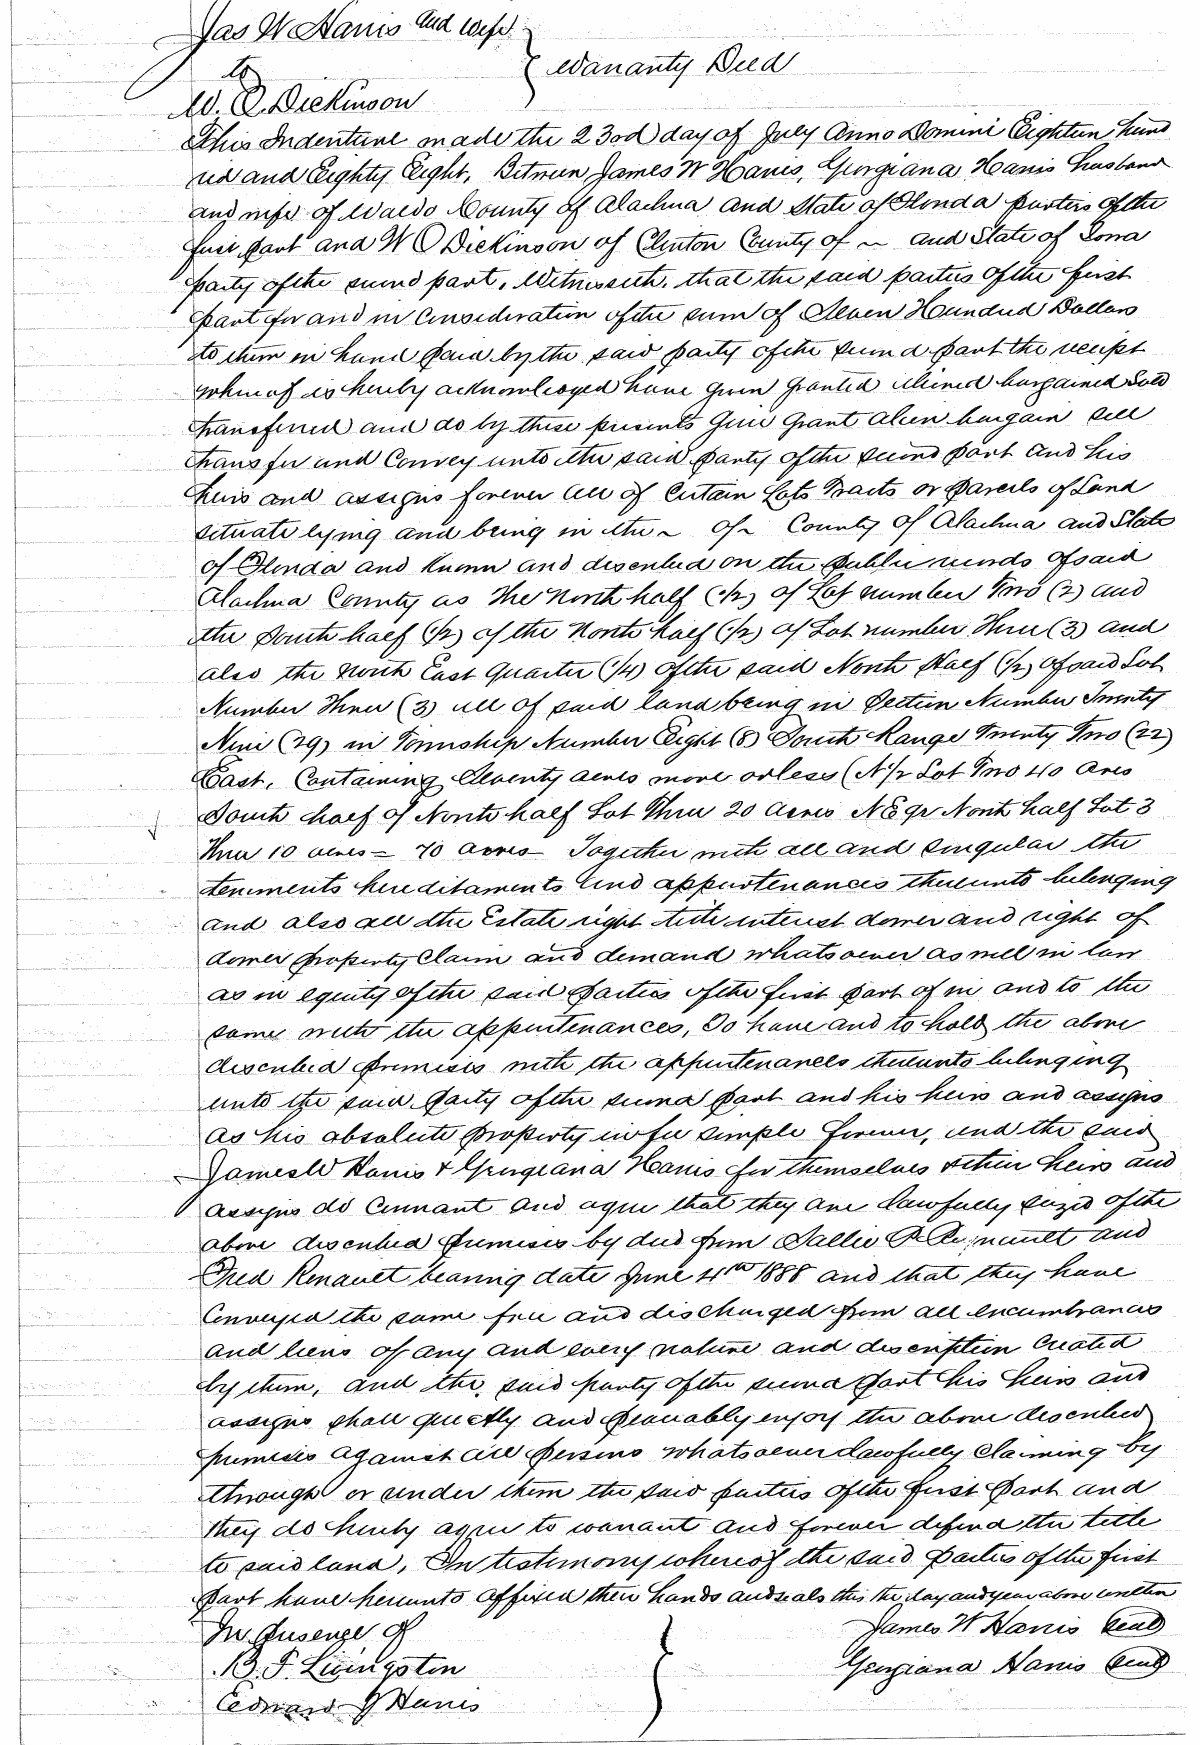 Jas W Harris and wife
to
Warranty Deed
W. O. Dickinson
This Indenture made the 23rd day of July Anno Domini Eighteen hund
red and Eighty Eight, Between James W Harris, Georgiana Harris husband
and wife of Waldo County of Alachua and State of Florida parties of the
first part and W O Dickinson of Clinton County of ~ and State of Iowa
party of the second part, Witnesseth, that the said parties of the first
part for and in Consideration of the sum of Eleven Hundred Dollars
to them in hand paid by the said party of the second part the receipt
whereof is hereby acknowledged have given granted aliened bargained Sold
transferred and do by these presents Give Grant Alien bargain sell
transfer and Convey unto the said party of the second part and his
heirs and assigns forever all of Certain Lots Tracts or Parcels of Land
situate lying and being in the ~ of ~ County of Alachua and State
of Florida and known and described on the Public records of said
Alachua County as The North half (1/2) of Lot number Two (2) and
the South half (1/2) of the North half (1/2) of Lot number Three (3) and
also the North East Quarter (1/4) of the said North Half (1/2) of said Lot
Number Three (3) all of said land being in Section Number Twenty
Nine (29) in Township Number Eight (8) South Range Twenty Two (22)
East, Containing Seventy acres more or less (N 1/2 Lot Two 40 Acres
South half of North half Lot Three 20 Acres N E qr North half Lot 3
Three 10 acres = 70 acres Together with all and singular the
tenements hereditaments and appurtenances thereunto belonging
and also all the Estate right title interest dower and right of
dower property Claim and demand whatsoever as well in law
as in equity of the said Parties of the first part of in and to the
same with the appurtenances, To have and to hold the above
described premises with the appurtenances thereunto belonging
unto the said party of the second part and his heirs and assigns
as his absolute property in fee simple forever, and the said
James W Harris & Georgiana Harris for themselves & their heirs and
assigns do Covenant and agree that they are lawfully siezed of the
above described premises by deed from Sallie R and
Fred Renault bearing date June 4th 1888 and that they have
Conveyed the same free and discharged from all encumbrances
and liens of any and every nature and description Created
by them, and the said party of the second part his heirs and
assigns shall quietly and peaceably enjoy the above described
premises against all persons whatsoever lawfully Claiming by
through or under them the said parties of the first part and
they do hereby agree to warrant and forever defend the title
to said land, In testimony whereof the said parties of the first
part have hereunto affixed their hands and seals this the day and year above written
In Presence of
James W Harris Seal
B. F. Livingston
Georgiana Harris Seal
Edward J Harris